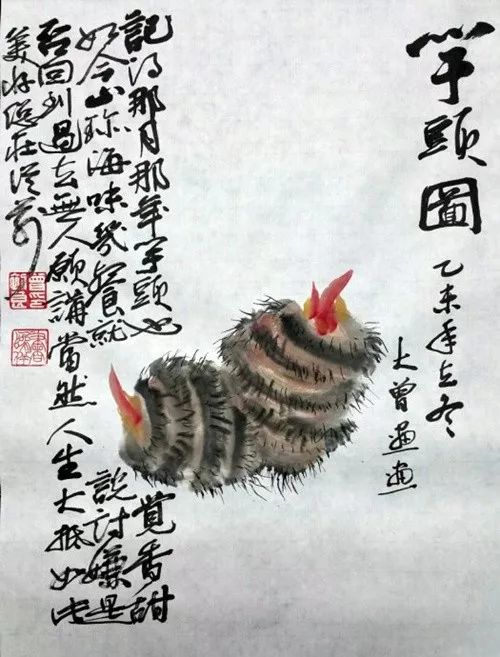 芋頭圖
乙未年立冬
大曾
記得那月那年芋頭也覺香甜
如今山珍海味幾餐就說討嫌是
否回到過去無人願講當然人生大抵如此
美好總在從前